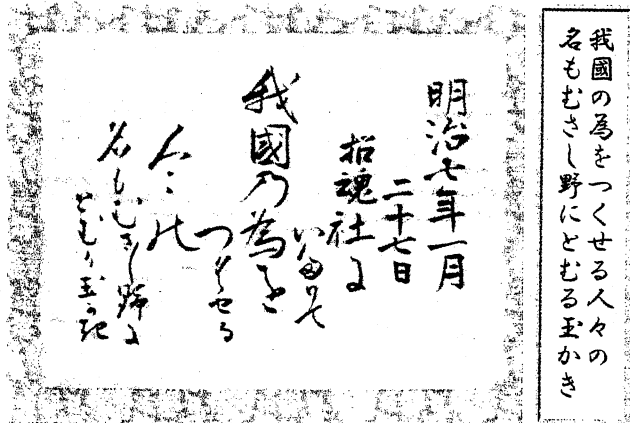 我國の為をつくせる人々の
名もむさし野にとむる玉かき
明治七年一月
二十七日
招魂社に
いたりて
我國乃為を
つくせる
人々の
名もむさし野に
とむる玉かき